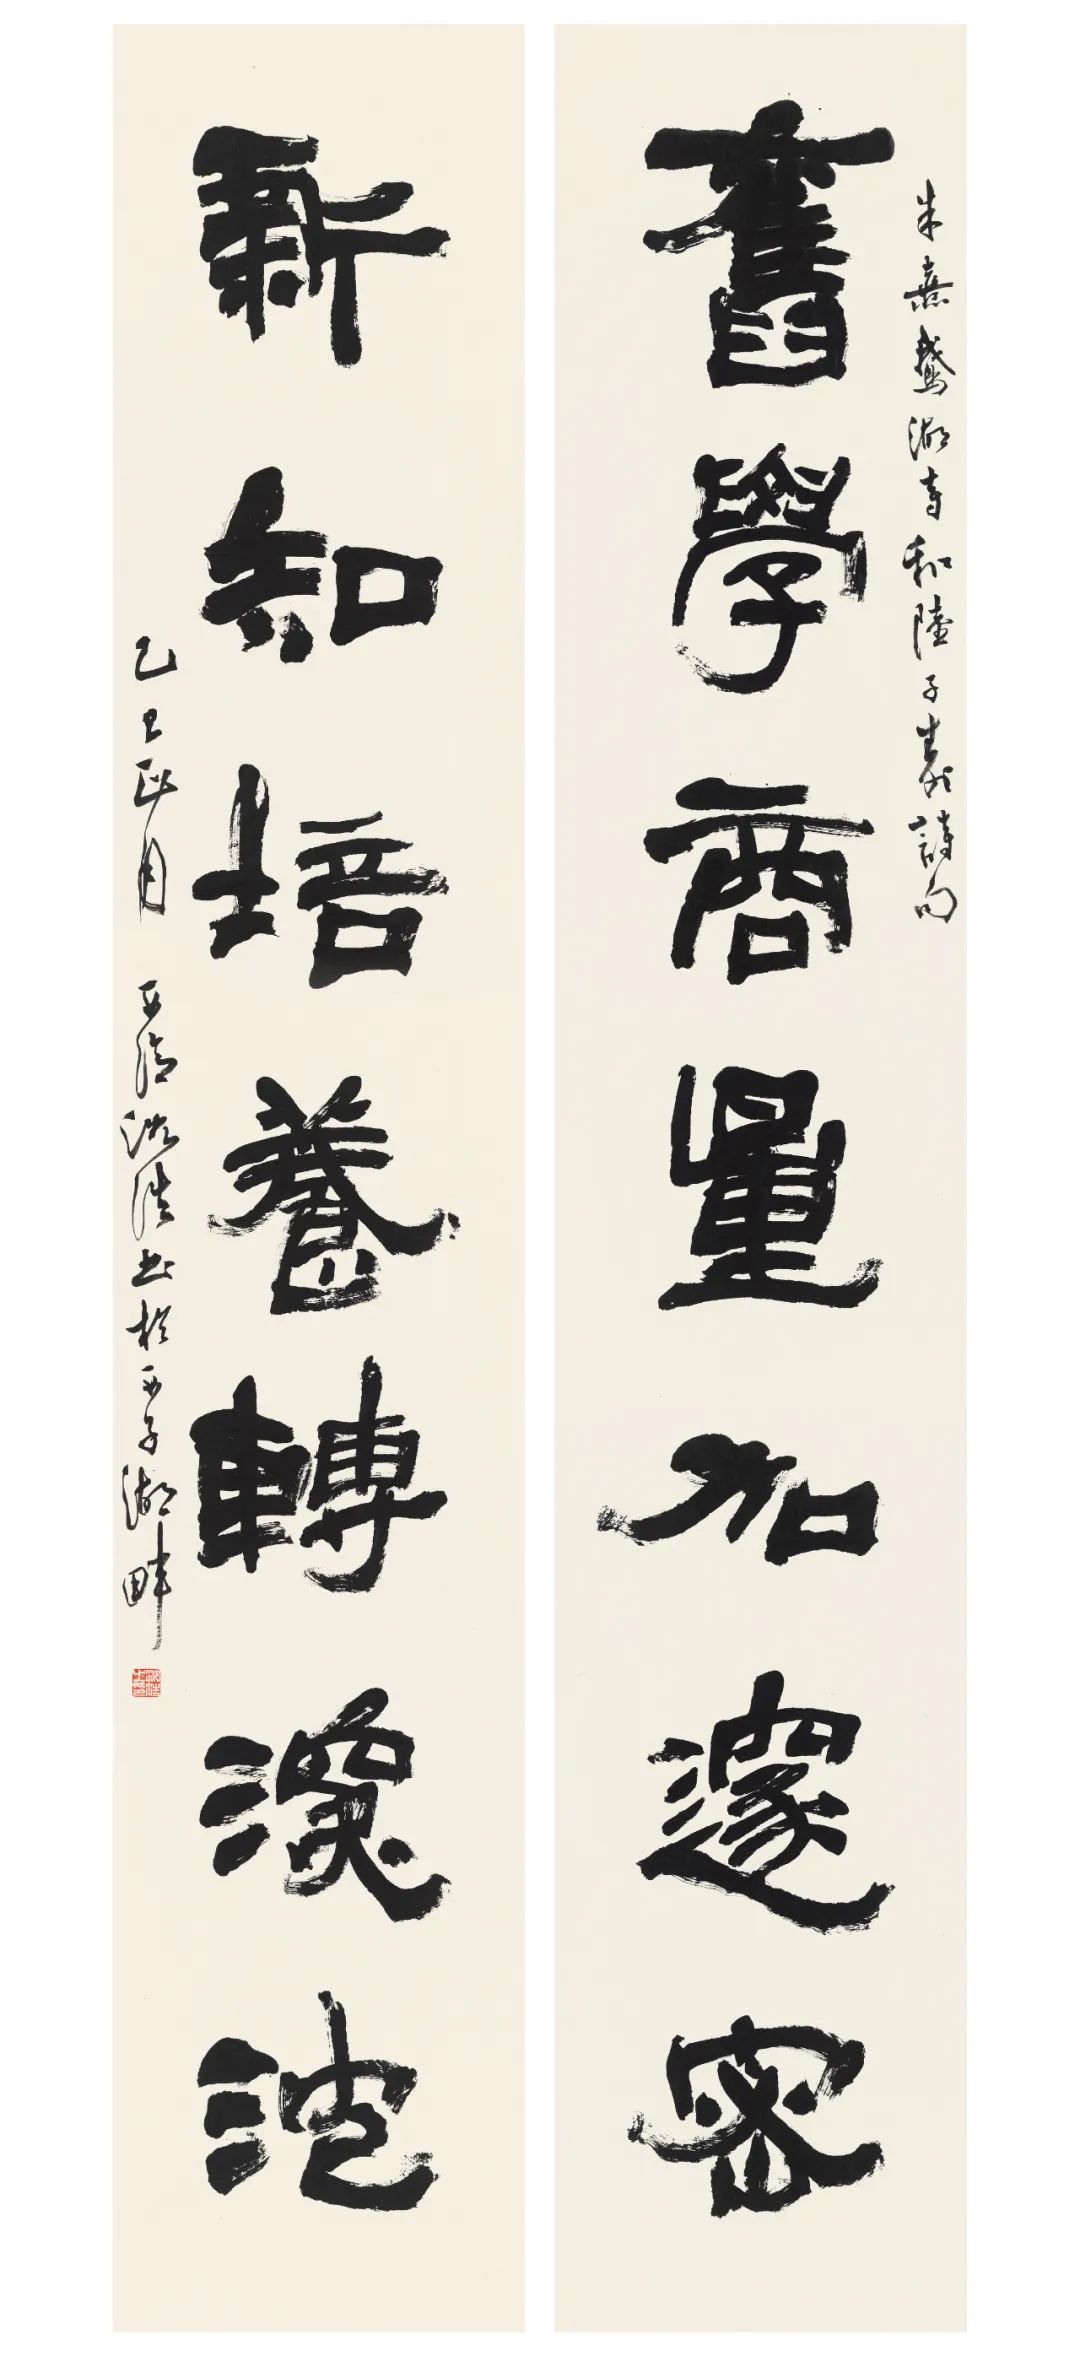 朱熹鵝湖寺和陸子壽詩句
舊學商量加邃密
新知培養轉深沈
乙巳 月 沈浩书於西子湖畔